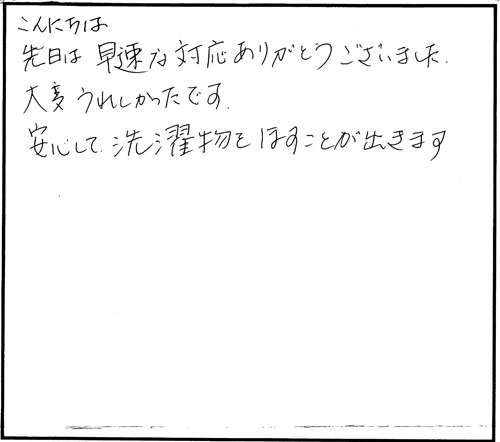 こんにちは
先日は早速な対応ありがとうございました.
大変うれしかったです.
安心して洗濯物をほすことが出きます